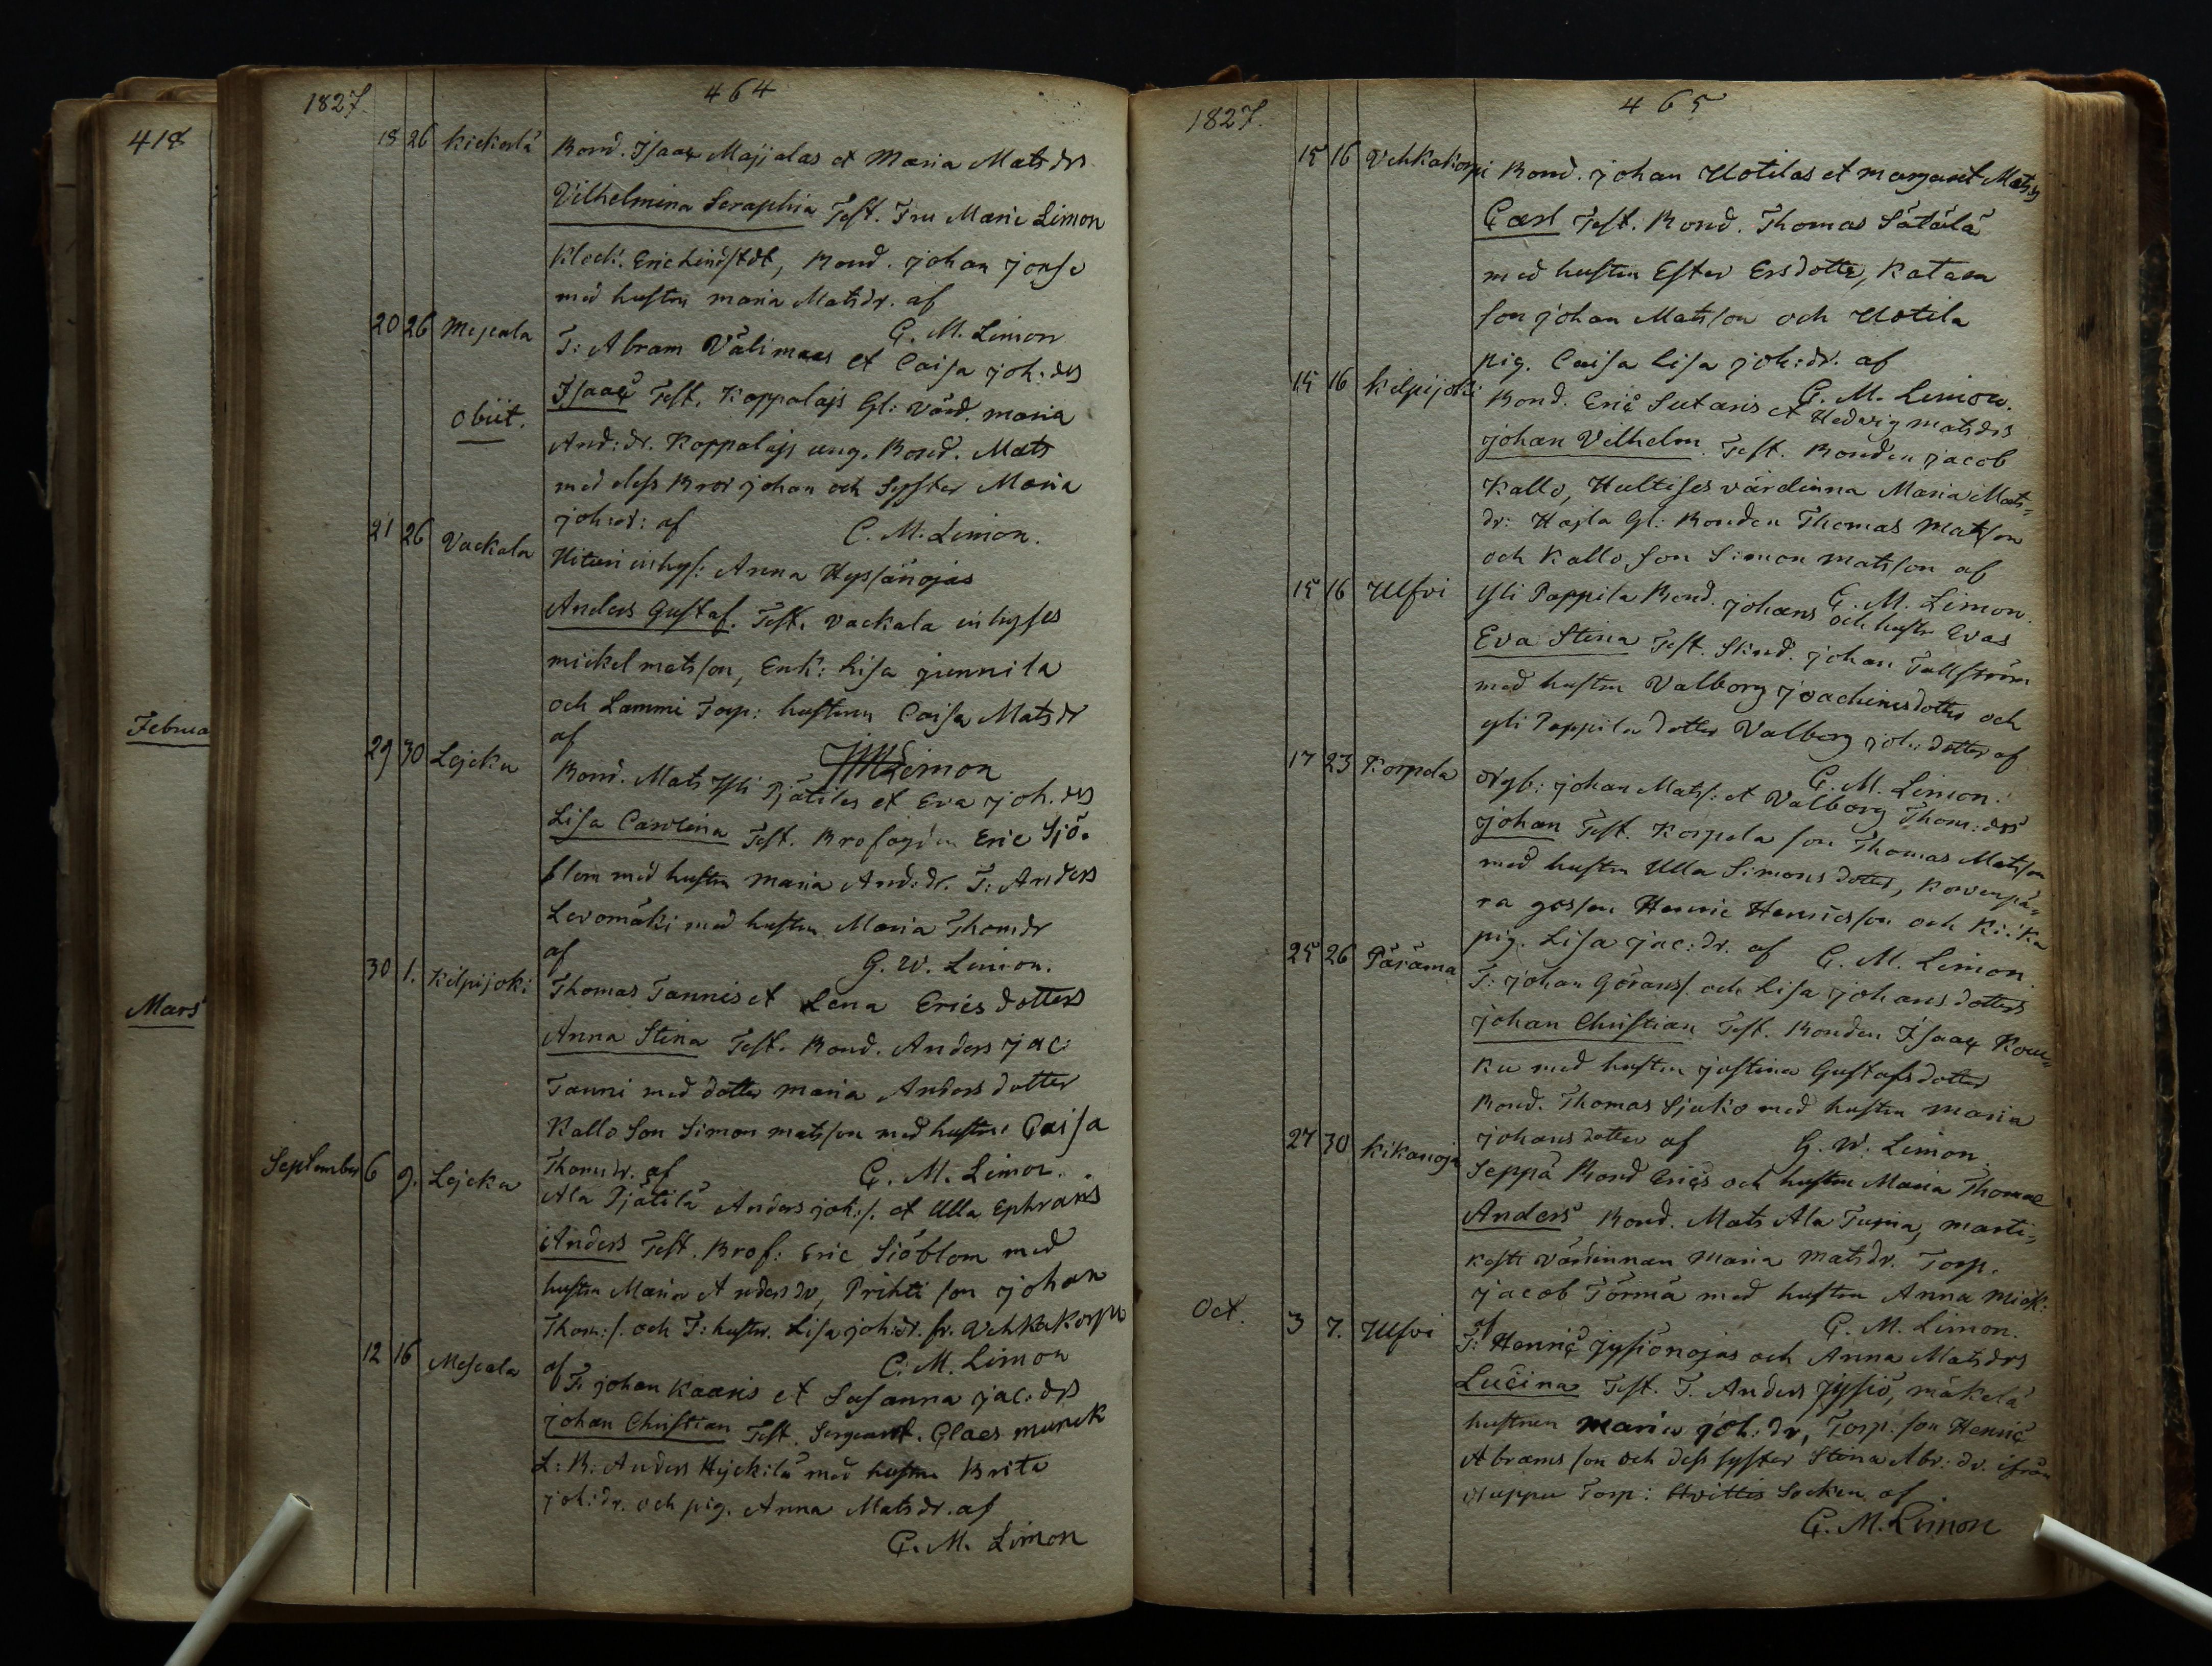 418
Februa
Mars
1827.
464
18 26 Kiekola Bond. Isaac Majjalas et Maria Matsdrs
Vilhelmina Seraphia Test. Fru Marie Limon
Klock. Eric Lindstdt, Bond. Johan Jonse
med hustru maria Matsdr. af
G. M. Limon
20 26 Mejcala T: Abram Välimaas et Caisa joh: drs
Obiit.
Isaac Test. Koppalajs Gl: värd. maria
And: dr. Koppalajs ung. Bond. Mats
med dess Bror johan och Syster Maria
joh: dr: af C. M. Limon.
21 26 Vackala Hituri inhys: Anna Hyssänojas
Anders Gustaf. Test. Vackala inhyses
mickel matsson, Enk: Lisa junnila
och Lammi Torp: hustrun Caisa Matsdr
af Limon
29 30 Lejcku Bond. Mats Yli Pjätiles et Eva joh. drs
Lisa Carolina Test. Brofogden Eric Sjö-
blom med hustru maria And: dr. T: Anders
Levomäki med hustru Maria Thomdr
af G. W. Limon.
30 1. Kilpijoki Thomas Tannis et Lena Erics dotters
Anna Stina Test. Bond. Anders jac:
Tanni med dotter maria Anders dotter
Kallo Son Simon matsson med hustru Caisa
Thomdr. af G. M. Limon.
September 6 9. Lejcku Ala Pjätilä Anders joh: s. et Ulla Ephraris
Anders Test. Brof: Eric Siöblom med
hustru Maria Andersdr, Prihti son johan
Thom: s. och T: hustru. Lisa joh: dr. fr. Vehkakorpi
af C. M. Limon
12 16 Mejcala T: johan Kaaris et Susanna jac: drs
johan Christian Test. Sergeant. Claes munck
L: B: Anders Hyckilä med hustru Brita
joh: dr. och pig. Anna Matsdr. af
G. M. Limon
1827.
465
15 16 Vehkakorpi Bond. johan Uotilas et margaret Matsdr
Carl Test. Bond. Thomas Sätälä
med hustru Ester Ersdotter, Katara
son johan Matsson och Uotila
pig. Caisa Lisa joh: dr. af
G. M. Limon.
15 16 Kilpijoki Bond. Eric Sutaris et Hedvig matsdrs
johan Vilhelm. Test. Bonden jacob
Kallo, Hultises värdinna Maria Mats-
dr: Hajla Gl: Bonden Thomas Matson
och Kallo son Simon matsson af
G. M. Limon.
15 16 Ulfvi Yli Pappila Bond. johans och hustr Evas
Eva Stina Test. Skind. johan Tallström
med hustru Valborg joachims dotter och
yli Pappila dotter Valborg joh: dotter af
G. M. Limon.
17 23 Korpela Nyb: johan Mats: et Valborg Thom: drs
johan Test. Korpela son Thomas Matsson
med hustru Ulla Simons dotter, Korvenpä-
rä gossen Henric Henricsson och Kiika
pig. Lisa jac: dr. af G. M. Limon.
25 26 Pärämä T: johan Görans. och Lisa johans dotters
johan Christian Test. Bonden Isaac Kou-
ku med hustru justina Gustafsdotter
Bond. Thomas Sjuko med hustru maria
johans dotter af G. W. Limon.
27 30 Kikanoja Seppä Bond Erics och hustru Maria Thomae
Anders Bond. Mats Ala Turja, marti-
kesti värdinnan maria matsdr. Torp.
jacob Törmä med hustru Anna Mick:
af G. M. Limon.
Oct. 3 7. Ulfvi T: Henric Jysiönojas och Anna Matsdrs
Lucina Test. T. Anders Jysiö, mäkelä
hustrun maria joh: dr, Torp. son Henric
Abrams son och dess syster Stina Abr: dr. ifrån
Nuppu Torp: Hvittis Socken af
G. M. Limon